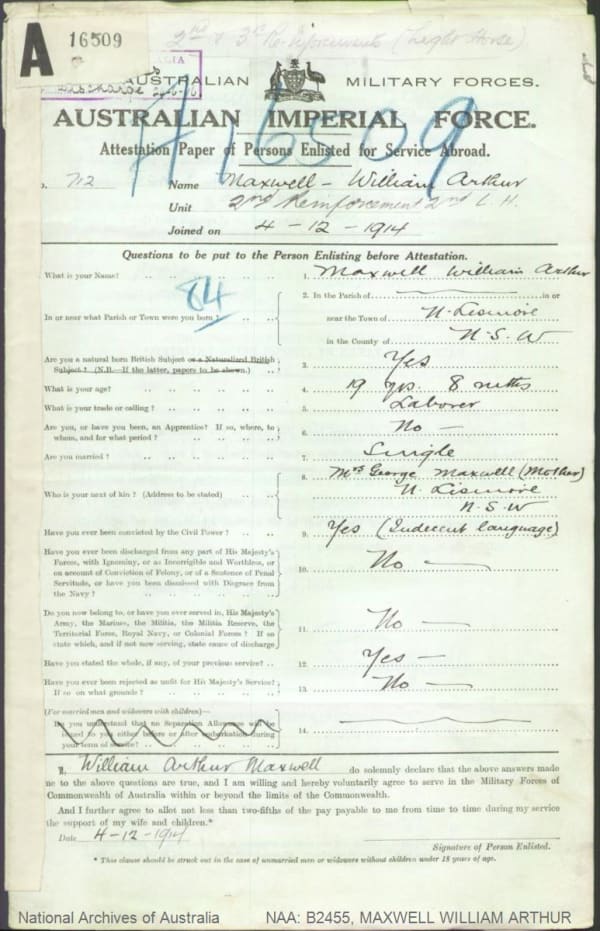 A 16509
2nd & 3rd Reinforcements (Light Horse)
Discharged
AUSTRALIAN MILITARY FORCES.
AUSTRALIAN IMPERIAL FORCE.
H16509
Attestation Paper of Persons Enlisted for Service Abroad.
712 Name Maxwell - William Arthur
Unit 2nd Reinforcement 2nd L. H.
Joined on 4-12-1914
Questions to be put to the Person Enlisting before Attestation.
What is your Name? 1. Maxwell William Arthur
84
2. In the Parish of in or
In or near what Parish or Town were you born? near the Town of N. Lismore
in the County of N-S.W
Are you a natural born British Subject or a Naturalized British 3. Yes
Subject? (N.B.—If the latter, papers to be shown.)
What is your age? 4. 19 yrs. 8 mths
What is your trade or calling? 5. Laborer
Are you, or have you been, an Apprentice? If so, where, to 6. No —
whom, and for what period?
Are you married? 7. Single
8. Mrs George Maxwell (Mother)
Who is your next of kin? (Address to be stated) N. Lismore
N.S.W
Have you ever been convicted by the Civil Power? 9. Yes (Indecent language)
Have you ever been discharged from any part of His Majesty's
Forces, with Ignominy, or as Incorrigible and Worthless, or
on account of Conviction of Felony, or of a Sentence of Penal 10. No —
Servitude, or have you been dismissed with Disgrace from
the Navy?
Do you now belong to, or have you ever served in, His Majesty's
Army, the Marines, the Militia, the Militia Reserve, the
Territorial Force, Royal Navy, or Colonial Forces? If so 11. No —
state which, and if not now serving, state cause of discharge
Have you stated the whole, if any, of your previous service? 12. Yes —
Have you ever been rejected as unfit for His Majesty's Service? 13. No —
If so on what grounds?
(For married men and widowers with children)—
Do you understand that no Separation Allowance will be
issued to you either before or after embarkation during 14.
your term of service?
I, William Arthur Maxwell do solemnly declare that the above answers made
me to the above questions are true, and I am willing and hereby voluntarily agree to serve in the Military Forces of
Commonwealth of Australia within or beyond the limits of the Commonwealth.
And I further agree to allot not less than two-fifths of the pay payable to me from time to time during my service
the support of my wife and children.*
Date 4-12-1914
Signature of Person Enlisted.
* This clause should be struck out in the case of unmarried men or widowers without children under 18 years of age.
National Archives of Australia NAA: B2455, MAXWELL WILLIAM ARTHUR